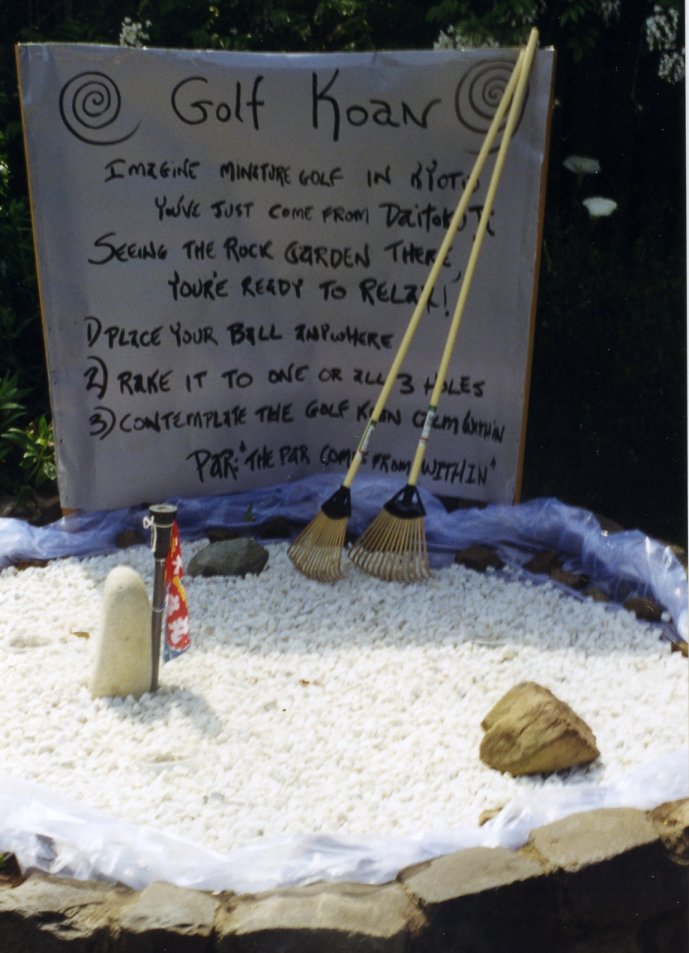 Golf Koan
IMAGINE MINATURE GOLF IN KYOTO
YOU'VE JUST COME FROM DAITOKUJI
SEEING THE ROCK GARDEN THERE,
YOU'RE READY TO RELAX!
1) PLACE YOUR BALL ANYWHERE
2) RAKE IT TO ONE OR ALL 3 HOLES
3) CONTEMPLATE THE GOLF KOAN CALM WITHIN
PAR: "THE PAR COMES FROM WITHIN"